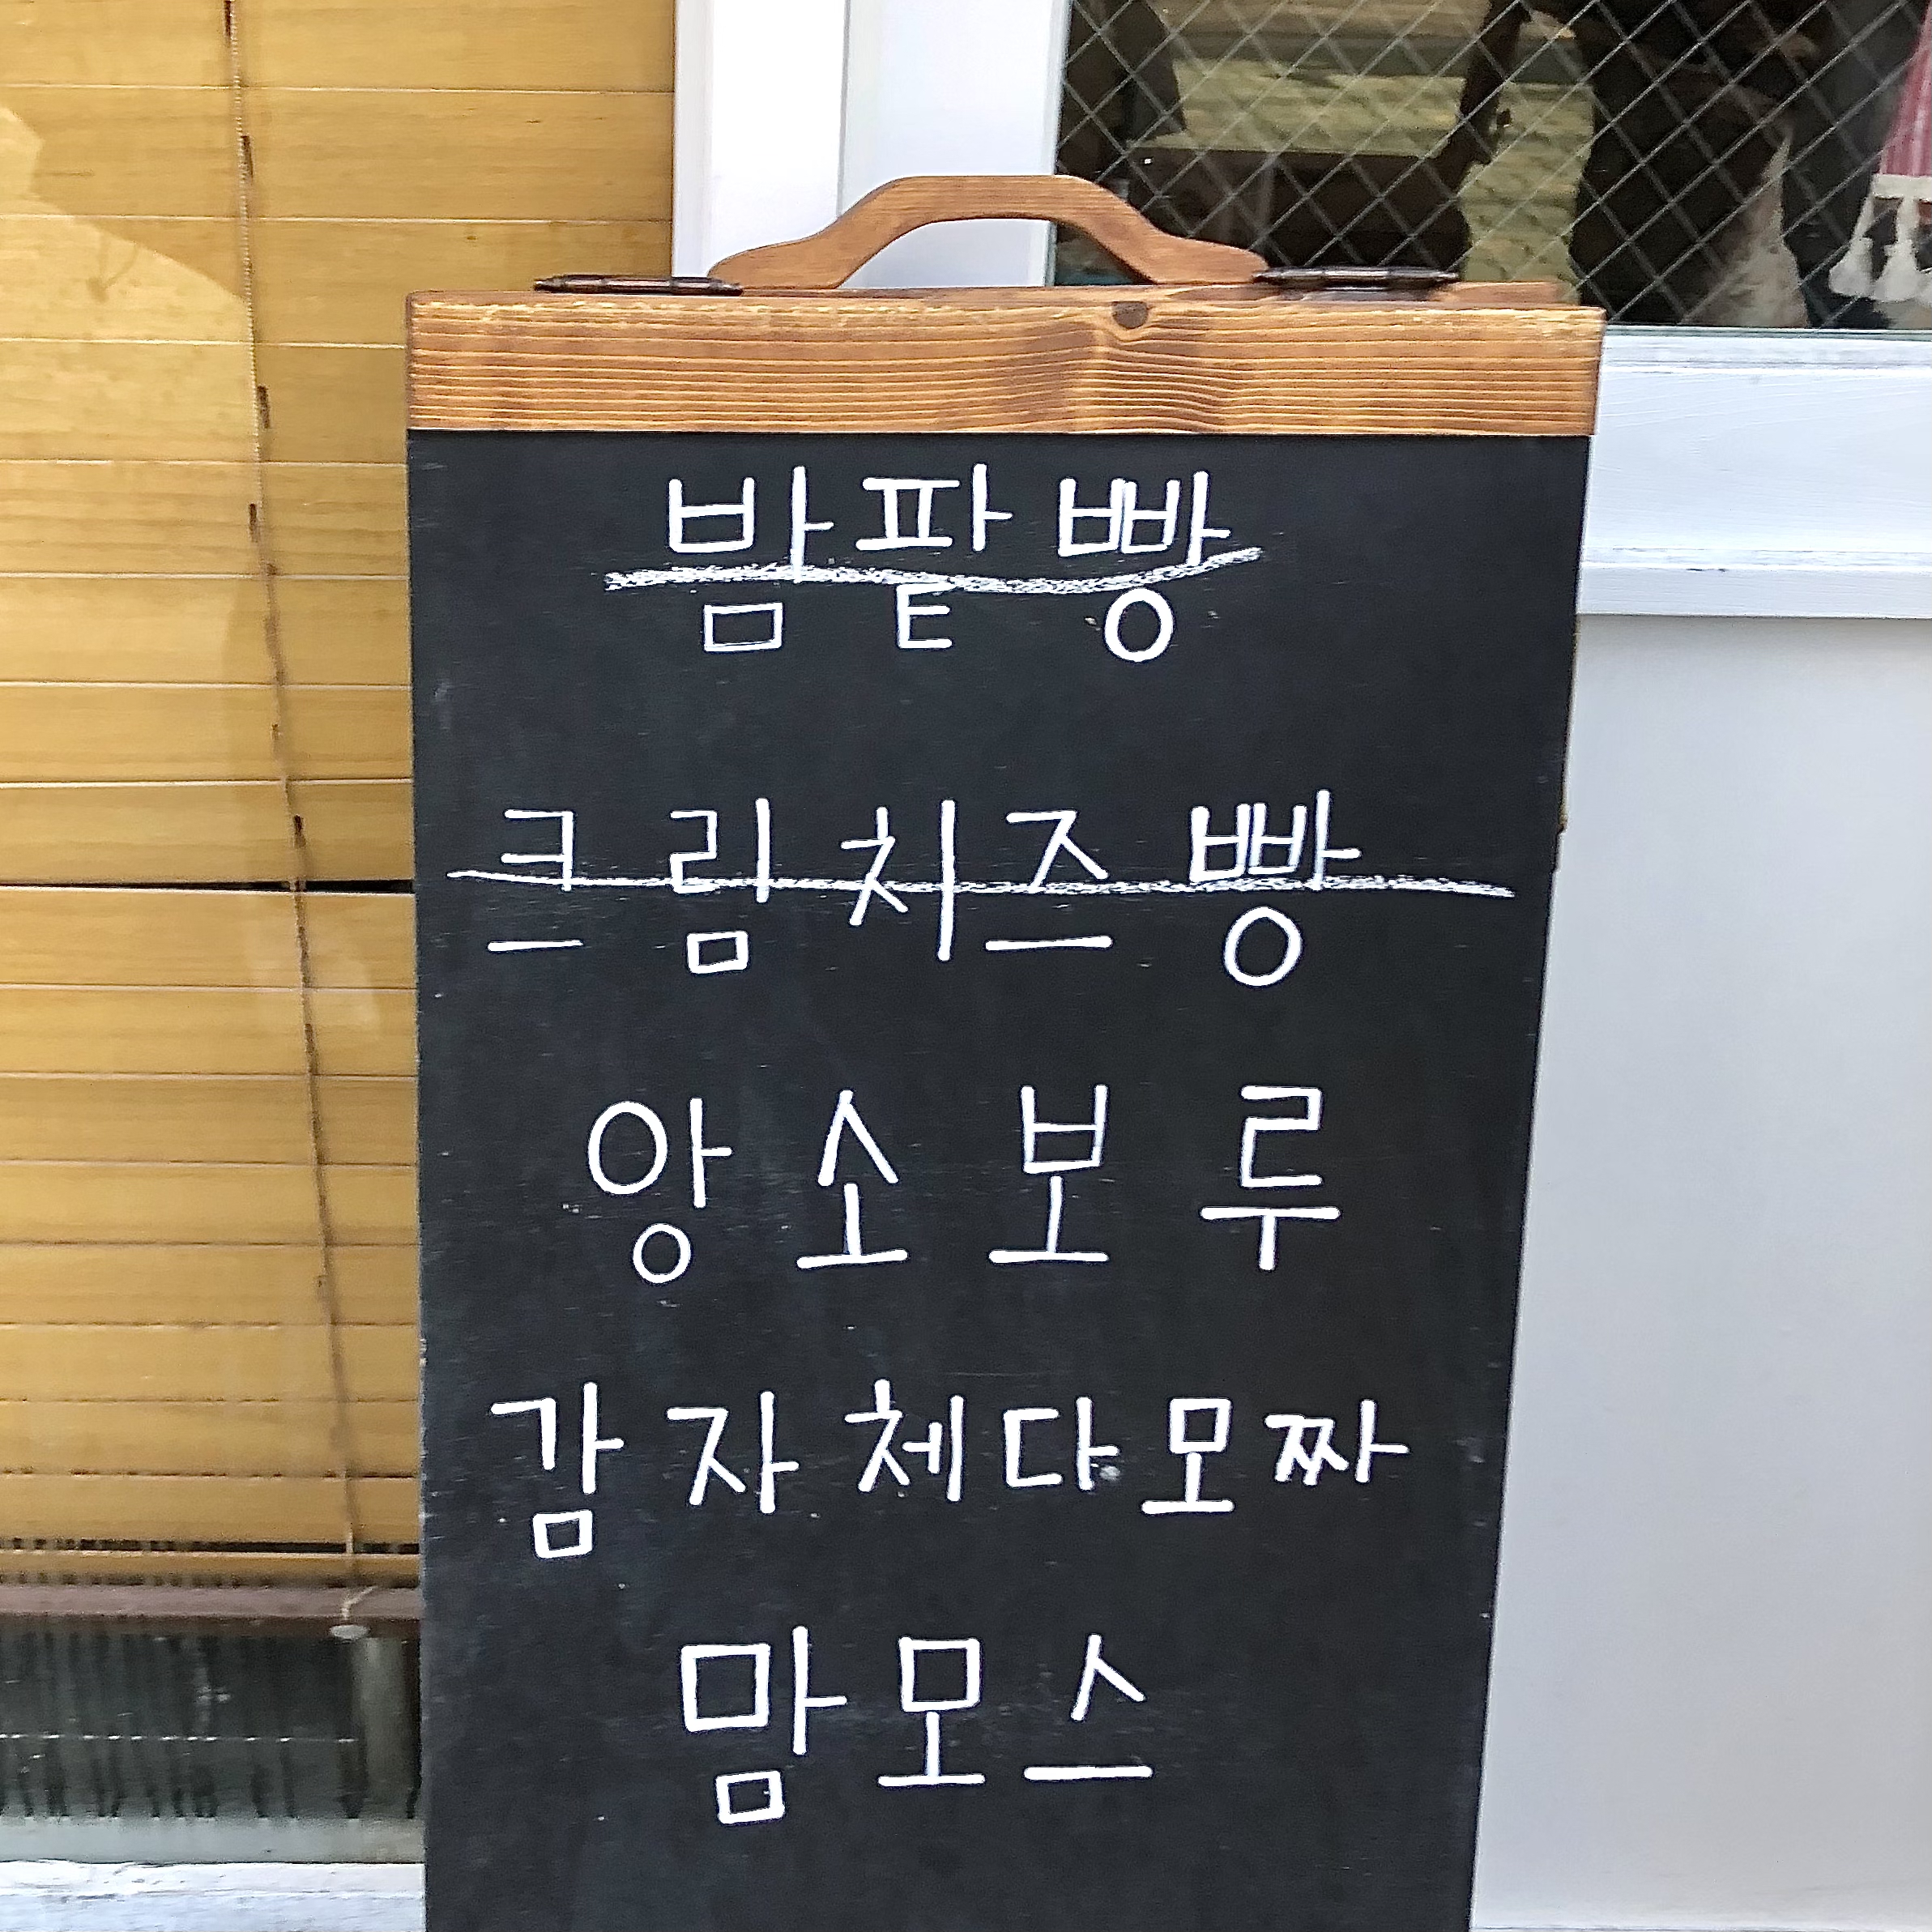 밤팥빵
크림치즈빵
앙소보루
감자체다모짜
맘모스